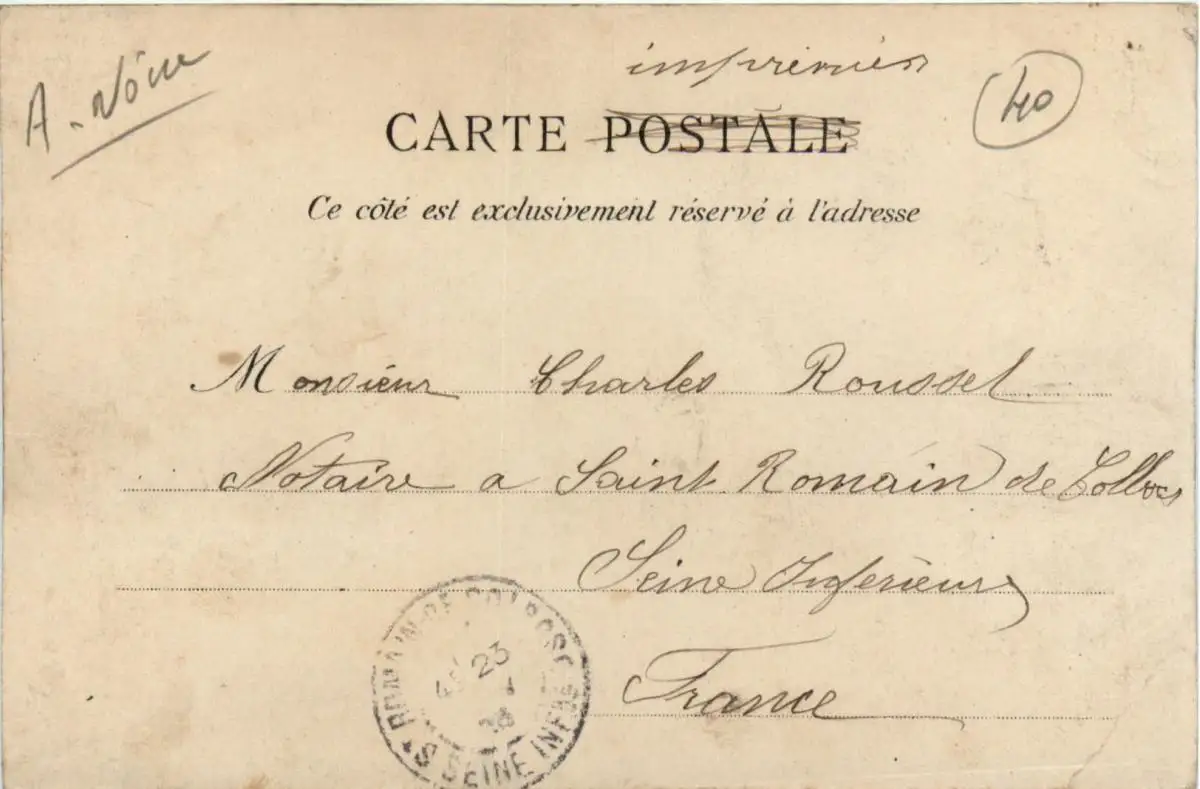 imprimés
40
CARTE POSTALE
Ce côté est exclusivement réservé à l'adresse
Monsieur Charles Roussel
Notaire a Saint Romain de
Seine Inferieure
France
ST ROMAIN DE COLBOSC
23
SEINE INFRE